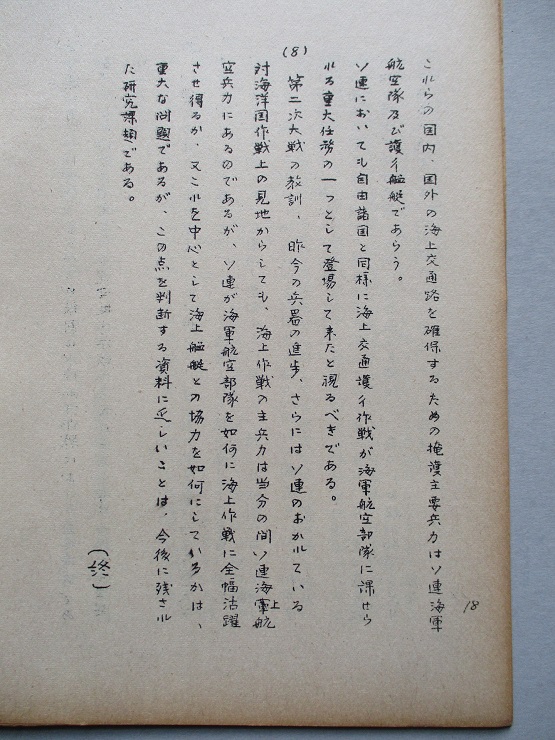 これらの国内、国外の海上交通路を確保するための掩護主要兵力はソ連海軍
航空隊及び護衛艦艇であらう。
ソ連においても自由諸国と同様に海上交通護衛作戦が海軍航空部隊に課せら
れる重大任務の一つとして登場して来たと視るべきである。
(8)
第二次大戦の教訓、昨今の兵器の進歩、さらにはソ連のおかれている
対海洋国作戦上の見地からしても、海上作戦の主兵力は当分の間ソ連海軍上航
空兵力にあるのであるが、ソ連が海軍航空部隊を如何に海上作戦に全幅活躍
させ得るか、又これを中心として海上艦艇との協力を如何にしているかは、
重大な問題であるが、この点を判断する資料に乏しいことは、今後に残され
た研究課題である。
(終)
18